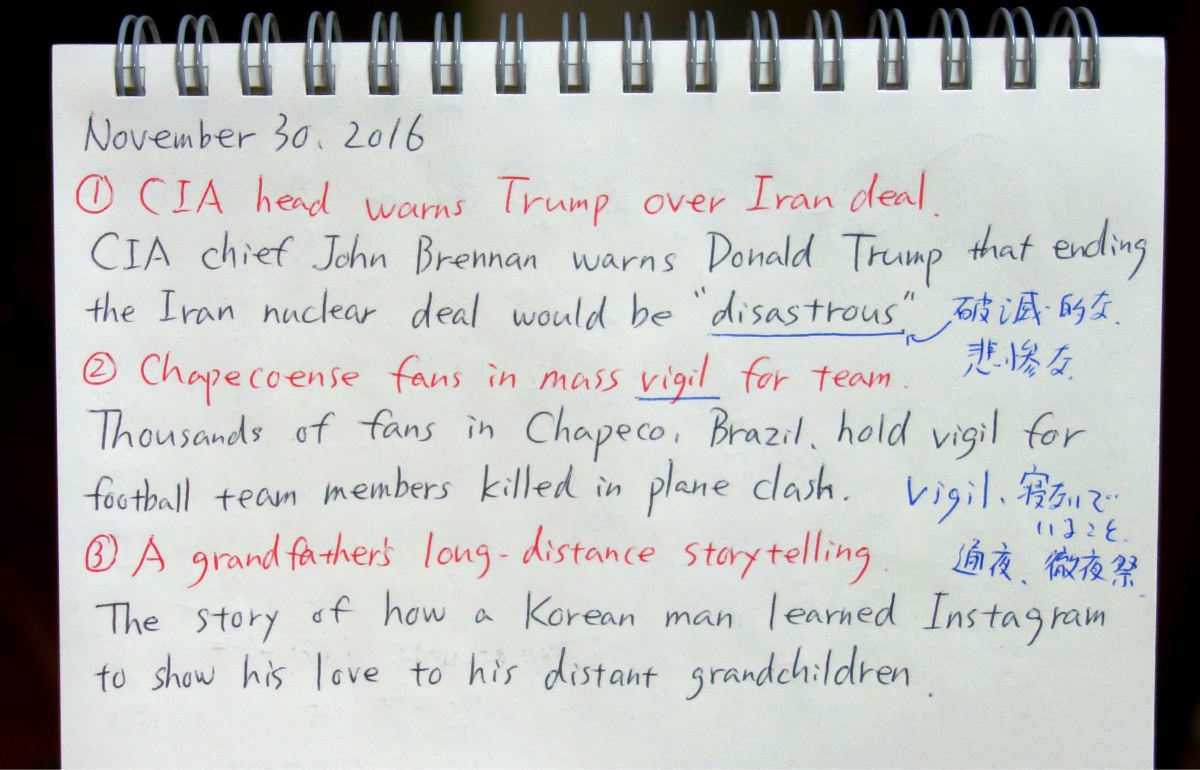 November 30, 2016
① CIA head warns Trump over Iran deal.
CIA chief John Brennan warns Donald Trump that ending
the Iran nuclear deal would be "disastrous" 破滅的な.
悲惨な.
② Chapecoense fans in mass vigil for team.
Thousands of fans in Chapeco, Brazil, hold vigil for
football team members killed in plane clash. vigil、寝ないで
いること.
③ A grandfather's long-distance storytelling. 通夜、徹夜祭.
The story of how a Korean man learned Instagram
to show his love to his distant grandchildren.